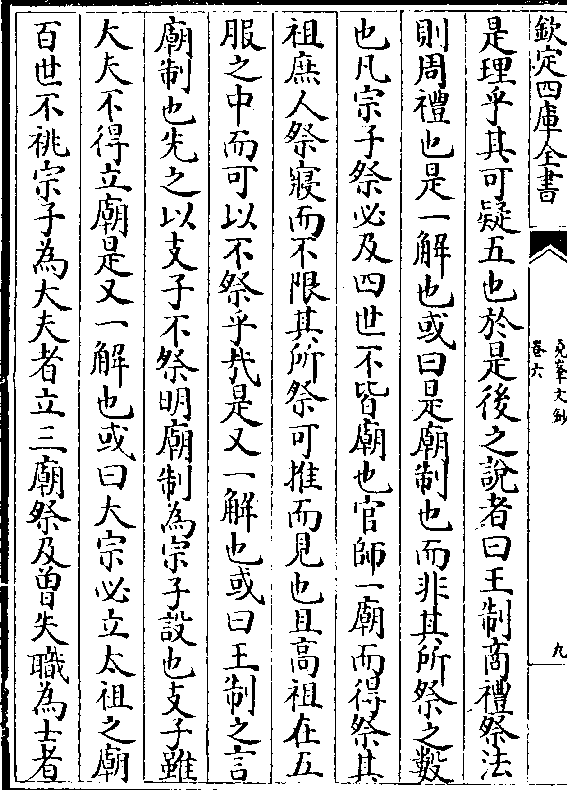 欽定四庫全書
堯峯文鈔
卷六
九
是理乎其可疑五也於是後之說者曰王制商禮祭法
則周禮也是一解也或曰是廟制也而非其所祭之數
也凡宗子祭必及四世不皆廟也官師一廟而得祭其
祖庶人祭寢而不限其所祭可推而見也且高祖在五
服之中而可以不祭乎哉是又一解也或曰王制之言
廟制也先之以支子不祭明廟制為宗子設也支子雖
大夫不得立廟是又一解也或曰大宗必立太祖之廟
百世不祧宗子為大夫者立三廟祭及曾失職為士者